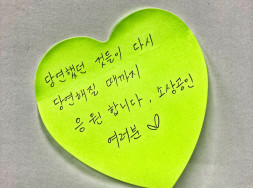 당연했던 것들이 다시
당연해질 때까지
응원합니다, 소상공인
여러분 ♡